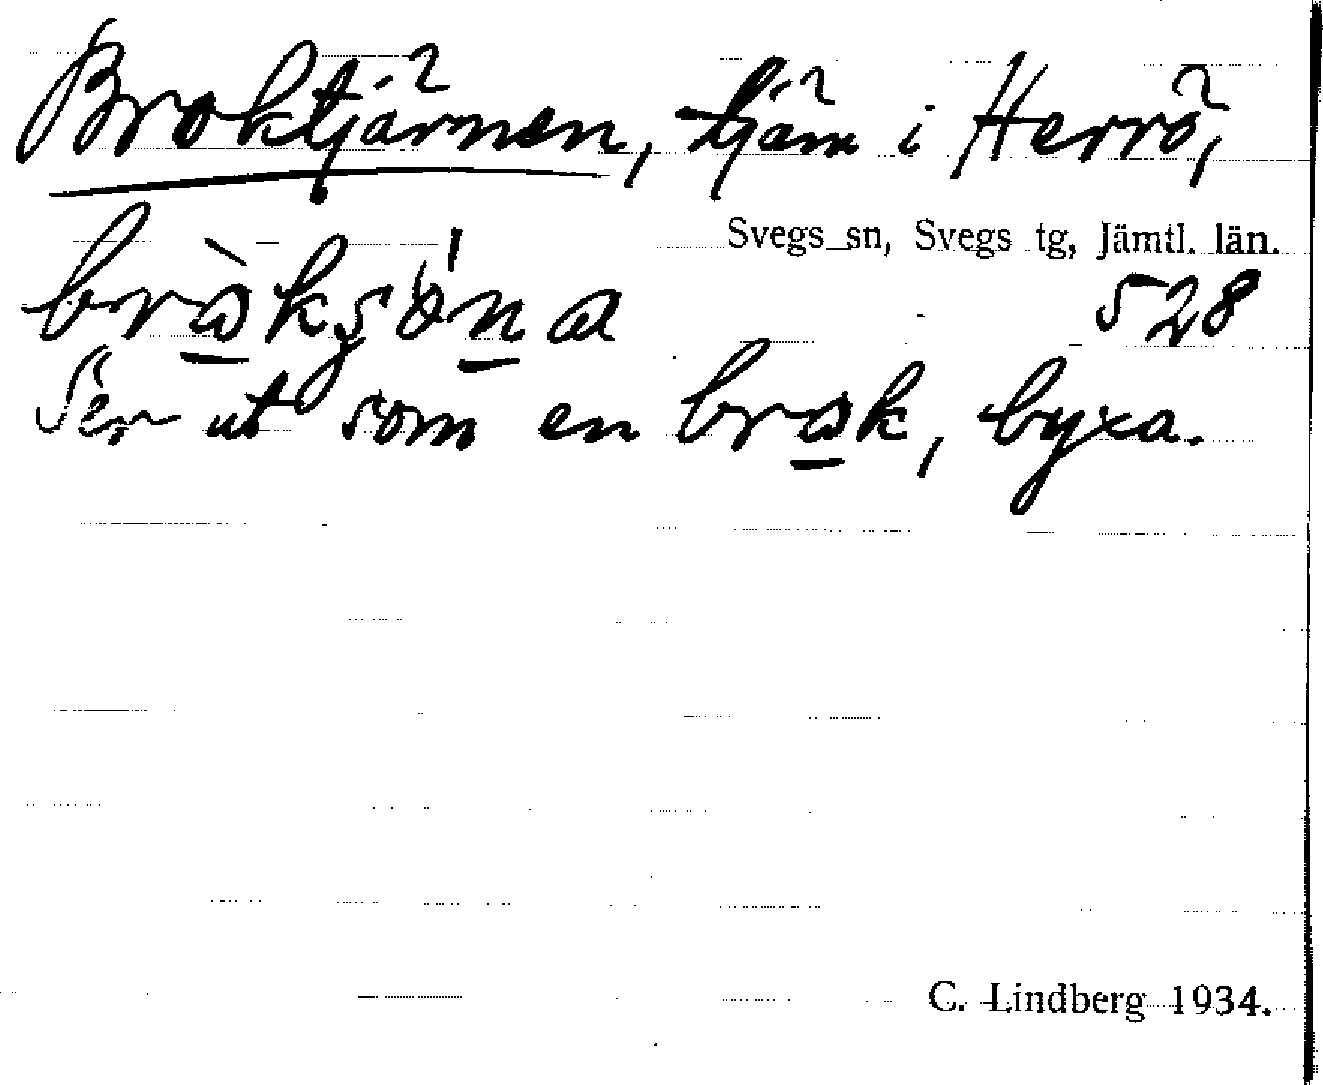 Broktjärnen, tjärn i Herrö,
Svegs sn, Svegs tg, Jämtl. län.
bròksö́na 528
Ser ut som en brok, byxa.
C. Lindberg 1934.